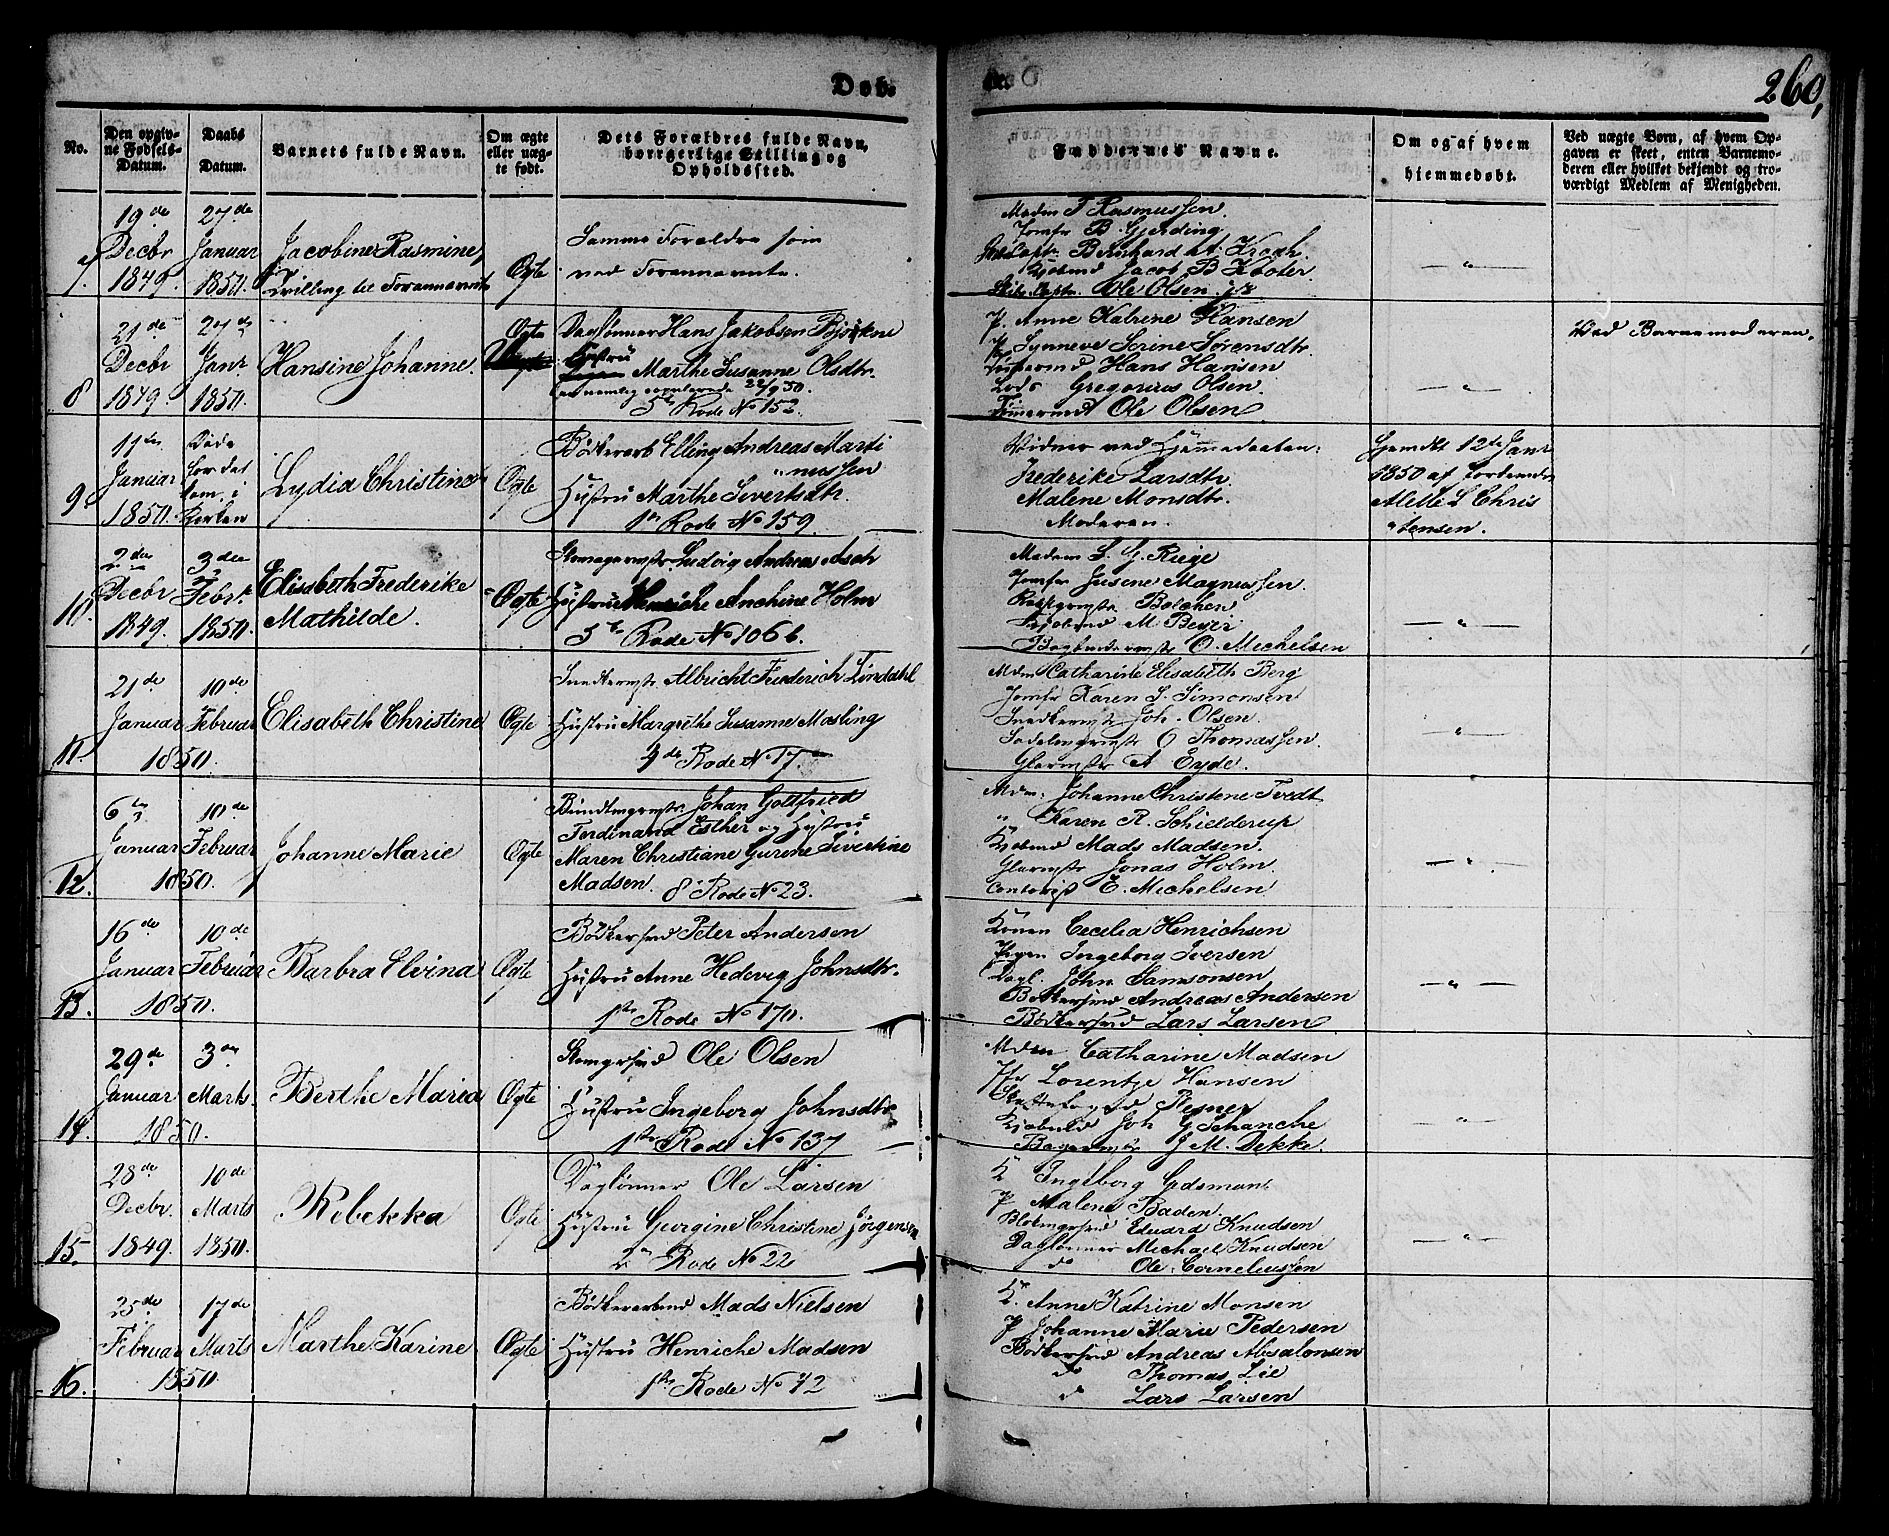 Døb.
260,
No.
Den opgiv-
ne Fødsels-
Datum.
Daabs
Datum.
Barnets fulde Navn.
Om ægte
eller uæg-
te født.
Dets Forældres fulde Navn,
borgerlige Stilling og
Opholdssted.
Faddernes Navne.
Om og af hvem
hjemmedøbt.
Ved uægte Børn, af hvem Op-
gaven er skeet, enten Barnemo-
deren eller hvilket bekjendt og tro-
værdigt Medlem af Menigheden.
7.
19de
Decbr
1849.
27de
Januar
1850.
Jacobine Rasmine,
Tvilling til Forannævnte
Ægte
Samme Forældre som
ved Forannævnte.
Madm T Rasmussen.
Jomfr B. Gjerding
Bernhard Krogh.
Kjøbmd Jacob B Kooter
Skibs Captn. Ole Olsen.
— " —
8
21de
Decbr
1849.
27de
Janr
1850.
Hansine Johanne.
Ægte
Daglønner Hans Jakobsen Bjørkne
Hustru Marthe Susanne Olsdtr.
22/9 50.
5te Rode No 152.
P. Anne Katrine Hansen
P. Synneve Serine Sørensdtr.
Tømermd Hans Hansen
Lods Gregorius Olsen
Tømermd Ole Olsen
— " —
Ved Barnemoderen.
9.
11te
Januar
1850.
Døde
før det
kom i
Kirken
Lydia Christine
Ægte
Bødkerarb Elling Andreas Marti
"nussen
Hustru Marthe Sivertsdtr.
1ste Rode No 159.
Vidner ved Hjemmedaaben:
Frederikke Larsdtr.
Malene Monsdtr.
Moderen.
Hjemdbt 12te Janr
1850 af Jordemdr
Alette L Chris
"tensen.
10.
2den
Decbr
1849.
3die
Febr.
1850.
Elisabeth Frederike
Mathilde.
Ægte
Skomagermstr Ludvig Andreas Asch
Hustru Henriche Anchine Holm
5te Rode No 106 b.
Madm S. G. Riege
Jomfr Jusene Magnussen.
Bolchen
Kjøbmd M. Beyer
Bogbindermstr O. Michelsen
— " —
11.
21de
Januar
10de
Februar
1850.
Elisabeth Christine
Ægte
Snedkermstr Albricht Friederich Lindahl
Hustru Margrethe Susanne Masling
4de Rode No 17
Mdm Catharine Elisabeth Berg
Jomfr Karen S. Simonsen
Snedkermstr Joh. Olsen.
Sadelmagermstr O Thomassen.
Glarmstr A Eyde.
— " —
12.
6te
Januar
10de
Februar
1850.
Johanne Marie
Ægte
Bundtmagermstr. Johan Gottfried
Ferdinand Esther og Hustru
Maren Christiane Gurine Sivertine
Madsen. 8de Rode No 23.
Mdm. Johanne Christene Tvedt
" Karen R. Schielderup
Kjøbmd Mads Madsen.
Glarmstr Jonas Holm.
Contorist E. Michelsen
— " —
13.
16de
Januar
10de
Februar
1850.
Barbra Elvina
Ægte
Bødkersvd Peter Andersen
Hustru Anne Hedevig Johnsdtr.
1ste Rode No 170.
Konen Cecelia Henrichsen
Pigen Ingeborg Iversen
Dagl. John Samsonsen
Bødkersvd Andreas Andersen
Bødkersvd Lars Larsen
— " —
14.
29de
Januar
3die
Marts.
1850.
Berthe Maria
Ægte
Skomgrsvd Ole Olsen
Hustru Ingeborg Johnsdtr
1ste Rode No 137
Mdm Catharine Madsen
Jfr Lorentze Hansen
Regner
Kjøbmd Joh G Schanche
Bagermstr J. M. Dekke.
— " —
15.
28de
Decbr.
1849.
10de
Marts
1850.
Rebekka
Ægte
Daglønner Ole Larsen
Hustru Georgine Christine Jørgensen
2den Rode No 22
K Ingeborg Gedsman
P Malene Baden.
Blokmgrsvd Edvard Knudsen
Daglønner Michael Knudsen
do Ole Corneliussen
— " —
16.
25de
Februar
17de
Marts
1850
Marthe Karine
Ægte
Bødkersvend Mads Nielsen
Hustru Henriche Madsen
1ste Rode No 72
K. Anne Katrine Monsen
P Johanne Marie Pedersen
Bødkersvd Andreas Absalonsen
do Thomas Lie
do Lars Larsen